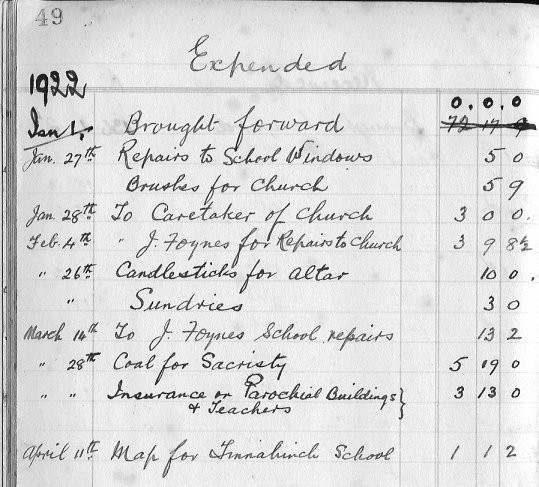 49
Expended
1922
0. 0. 0
Jan 1. Brought forward 72 17 9
Jan. 27th Repairs to School Windows 5 0
Brushes for Church 5 9
Jan. 28th To Caretaker of Church 3 0 0.
Feb. 4th " J. Foynes for Repairs to Church 3 9 8½
" 26th Candlesticks for Altar 10 0.
" Sundries 3 0
March 14th To J. Foynes School repairs 13 2
" 28th Coal for Sacristy 5 19 0
" " Insurance on Parochial Buildings 3 13 0
& Teachers
April 11th Map for Tinnahinch School 1 1 2